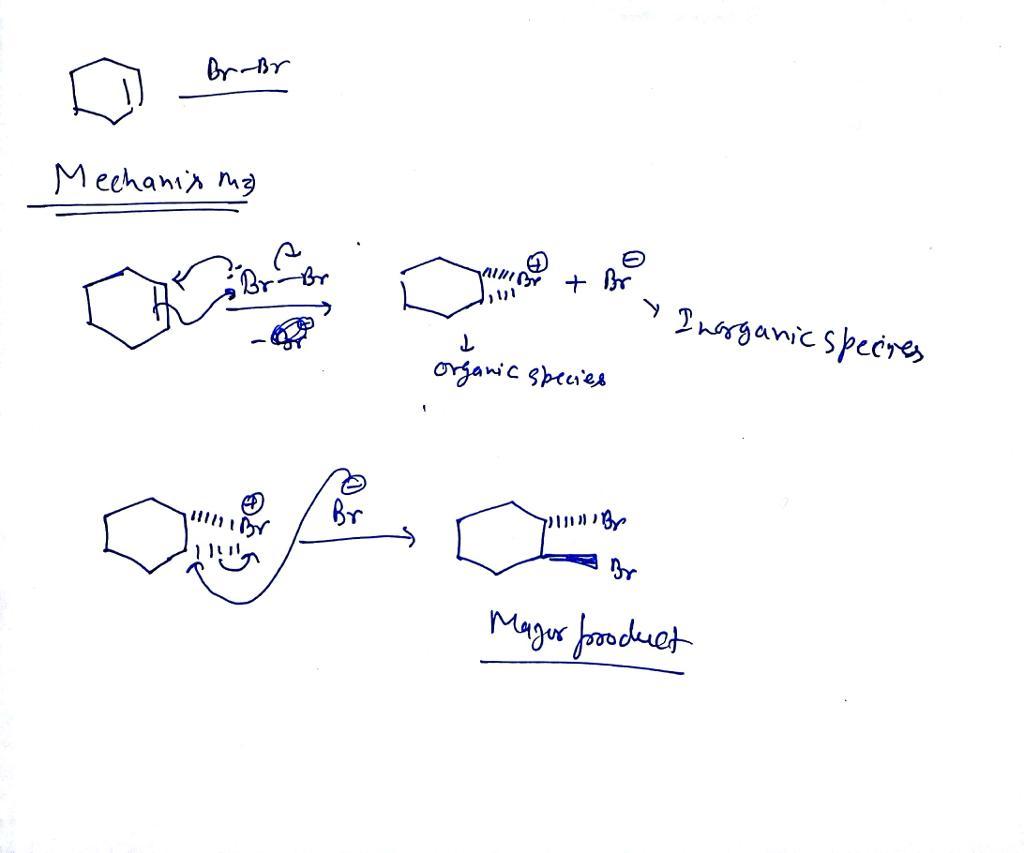 Br-Br
Mechanism⇒
:Br-Br
⊕
Br + Br ⊖
Inorganic species
↓
organic species
⊕
Br Br ⊖
Br
Br
Major product